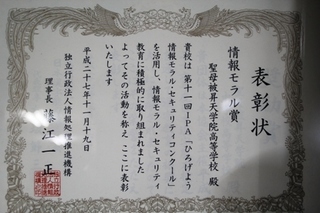 表彰状
情報モラル賞
聖母被昇天学院高等学校 殿
貴校は第十一回IPA「ひろげよう
情報モラル・セキュリティコンクール」
を活用し、情報モラル・セキュリティ
教育に積極的に取り組まれました
よってその活動を称え、ここに表彰
いたします
平成二十七年十一月十九日
独立行政法人情報処理推進機構
理事長 江一正